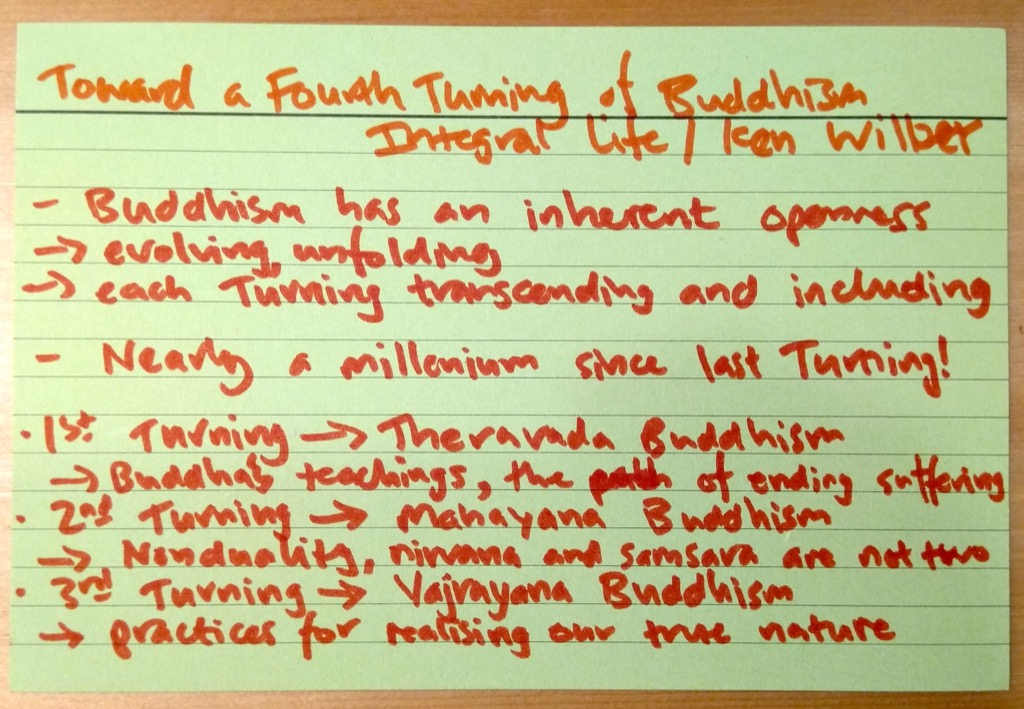 Toward a Fourth Turning of Buddhism
Integral Life / Ken Wilber
- Buddhism has an inherent openness
→ evolving, unfolding
→ each Turning transcending and including
- Nearly a millenium since last Turning!
· 1st Turning → Theravada Buddhism
→ Buddha's teachings, the path of ending suffering
· 2nd Turning → Mahayana Buddhism
→ Nonduality, nirvana and samsara are not two
· 3rd Turning → Vajrayana Buddhism
→ practices for realising our true nature